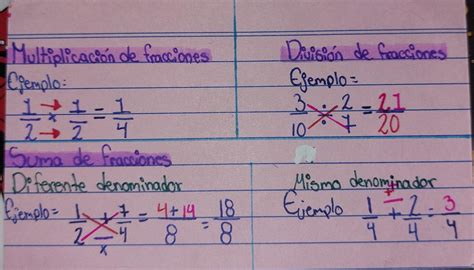 Multiplicación de fracciones
Ejemplo:
1/2 → x → 1/2 = 1/4
División de fracciones
Ejemplo =
3/10 ÷ 2/7 = 21/20
Suma de fracciones
Diferente denominador
Ejemplo = 1/2 + 7/4 = 4+14/8 = 18/8
x
Mismo denominador
+
Ejemplo 1/4 + 2/4 = 3/4